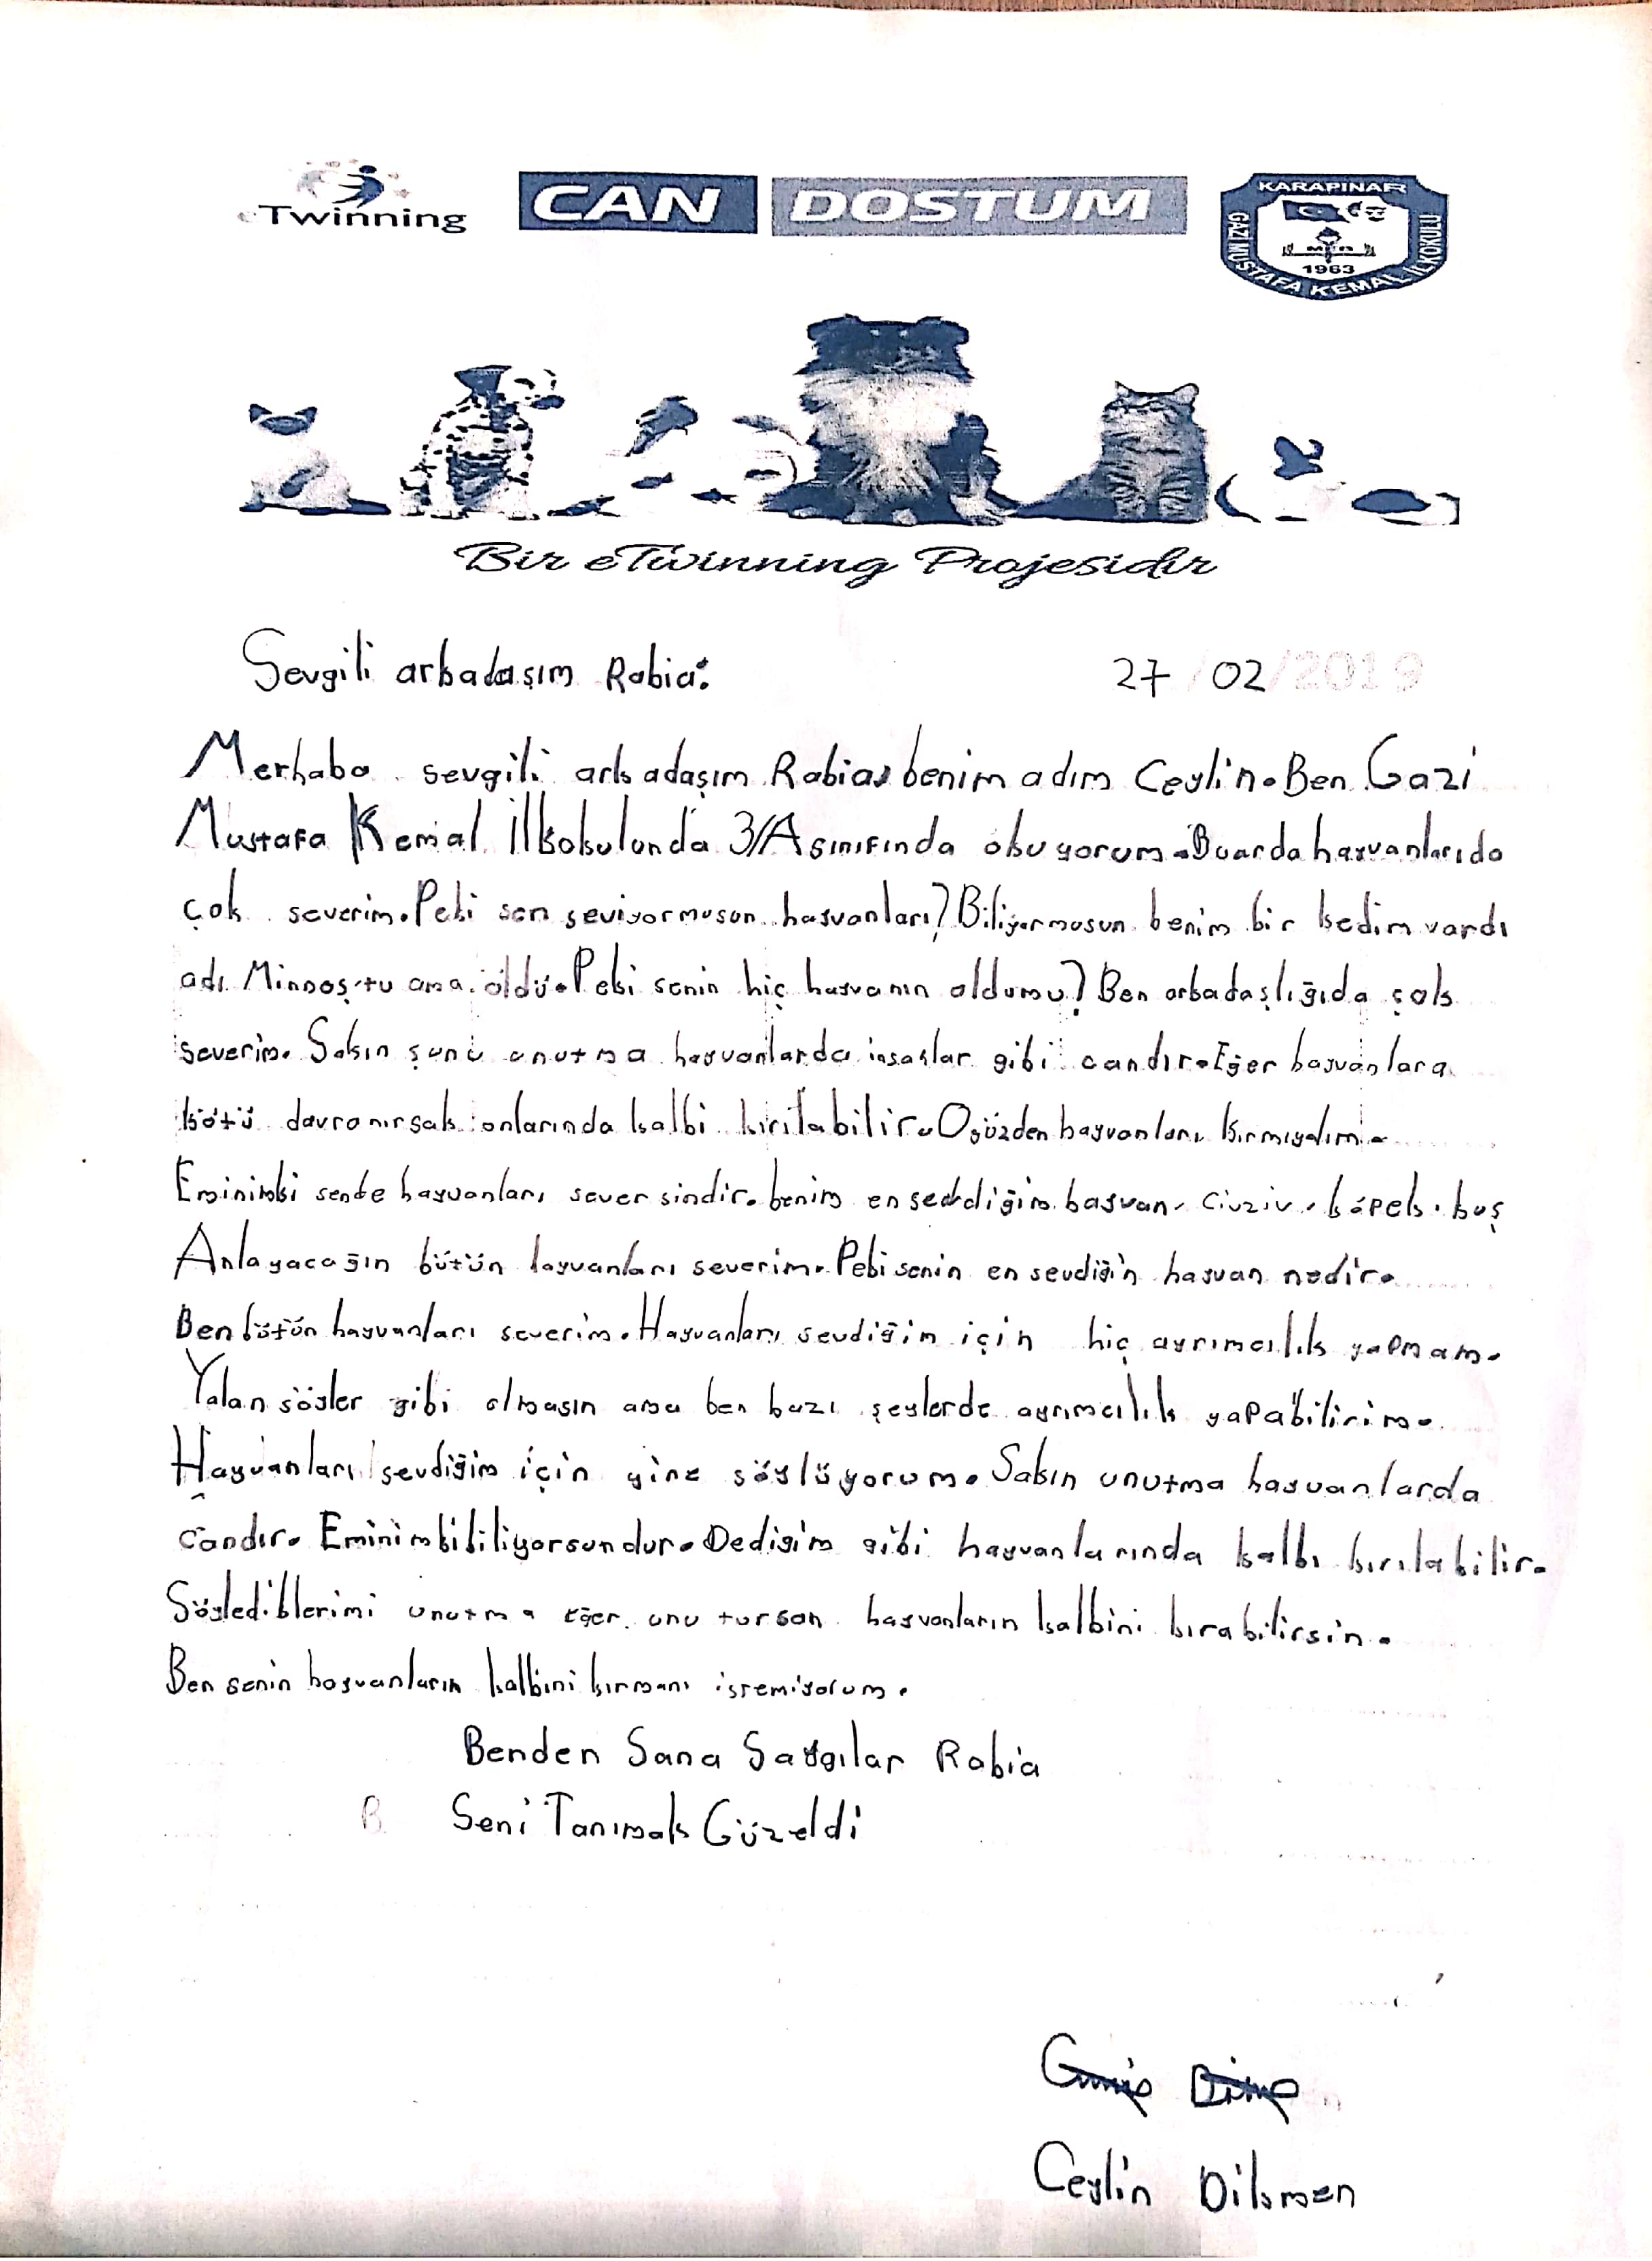 eTwinning
CAN DOSTUM
KARAPINAR
GAZİ MUSTAFA KEMAL İLKOKULU
1963
Bir eTwinning Projesidir
Sevgili arkadaşım Rabia:
27/02/2019
Merhaba sevgili arkadaşım Rabia, benim adım Ceylin. Ben Gazi
Mustafa Kemal İlkokulunda 3/A sınıfında okuyorum. Buarda hayvanlarıda
çok severim. Peki sen seviyormusun hayvanları? Biliyormusun benim bir kedim vardı
adı Minnoş'tu ama öldü. Peki senin hiç hayvanın oldumu? Ben arkadaşlığıda çok
severim. Sakın şunu unutma hayvanlarda insanlar gibi candır. Eğer hayvanlara
kötü davranırsak onlarında kalbi kırılabilir. Oyüzden hayvanları kırmıydım.
Eminimki sende hayvanları seversindir. benim en sevdiğim hayvan, civziv, köpek, kuş
Anlayacağın bütün hayvanları severim. Peki senin en sevdiğin hayvan nedir.
Ben bütün hayvanları severim. Hayvanları sevdiğim için hiç ayrımcılık yapmam.
Yalan söyler gibi olmasın ama ben bazı şeylerde ayrımcılık yapabilirim.
Hayvanları sevdiğim için yine söylüyorum. Sakın unutma hayvanlarda
candır. Eminimkibiliyorsundur. Dediğim gibi hayvanlarında kalbi kırılabilir.
Söylediklerimi unutma eğer unutursan hayvanların kalbini kırabilirsin.
Ben senin hayvanların kalbini kırmanı istemiyorum.
Benden Sana Saygılar Rabia
Seni Tanımak Güzeldi
Ceylin Dikmen